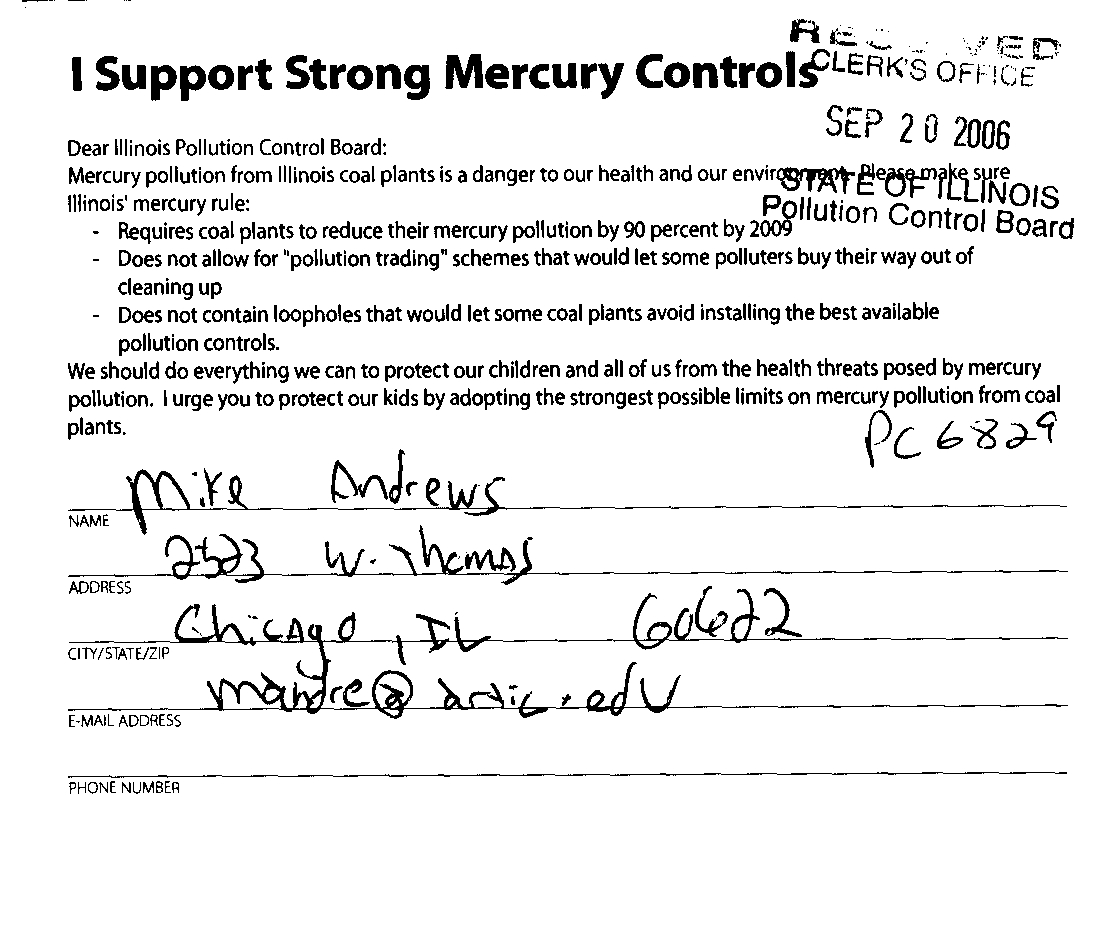 RECEIVED
CLERK'S OFFICE
I Support Strong Mercury Controls
SEP 20 2006
STATE OF ILLINOIS
Pollution Control Board
Dear Illinois Pollution Control Board:
Mercury pollution from Illinois coal plants is a danger to our health and our environment. Please make sure
Illinois' mercury rule:
- Requires coal plants to reduce their mercury pollution by 90 percent by 2009
- Does not allow for "pollution trading" schemes that would let some polluters buy their way out of
cleaning up
- Does not contain loopholes that would let some coal plants avoid installing the best available
pollution controls.
We should do everything we can to protect our children and all of us from the health threats posed by mercury
pollution. I urge you to protect our kids by adopting the strongest possible limits on mercury pollution from coal
plants.
PC 6829
Mike Andrews
NAME
2523 W. Thomas
ADDRESS
Chicago, IL 60622
CITY/STATE/ZIP
mandre@artic.edu
E-MAIL ADDRESS
PHONE NUMBER